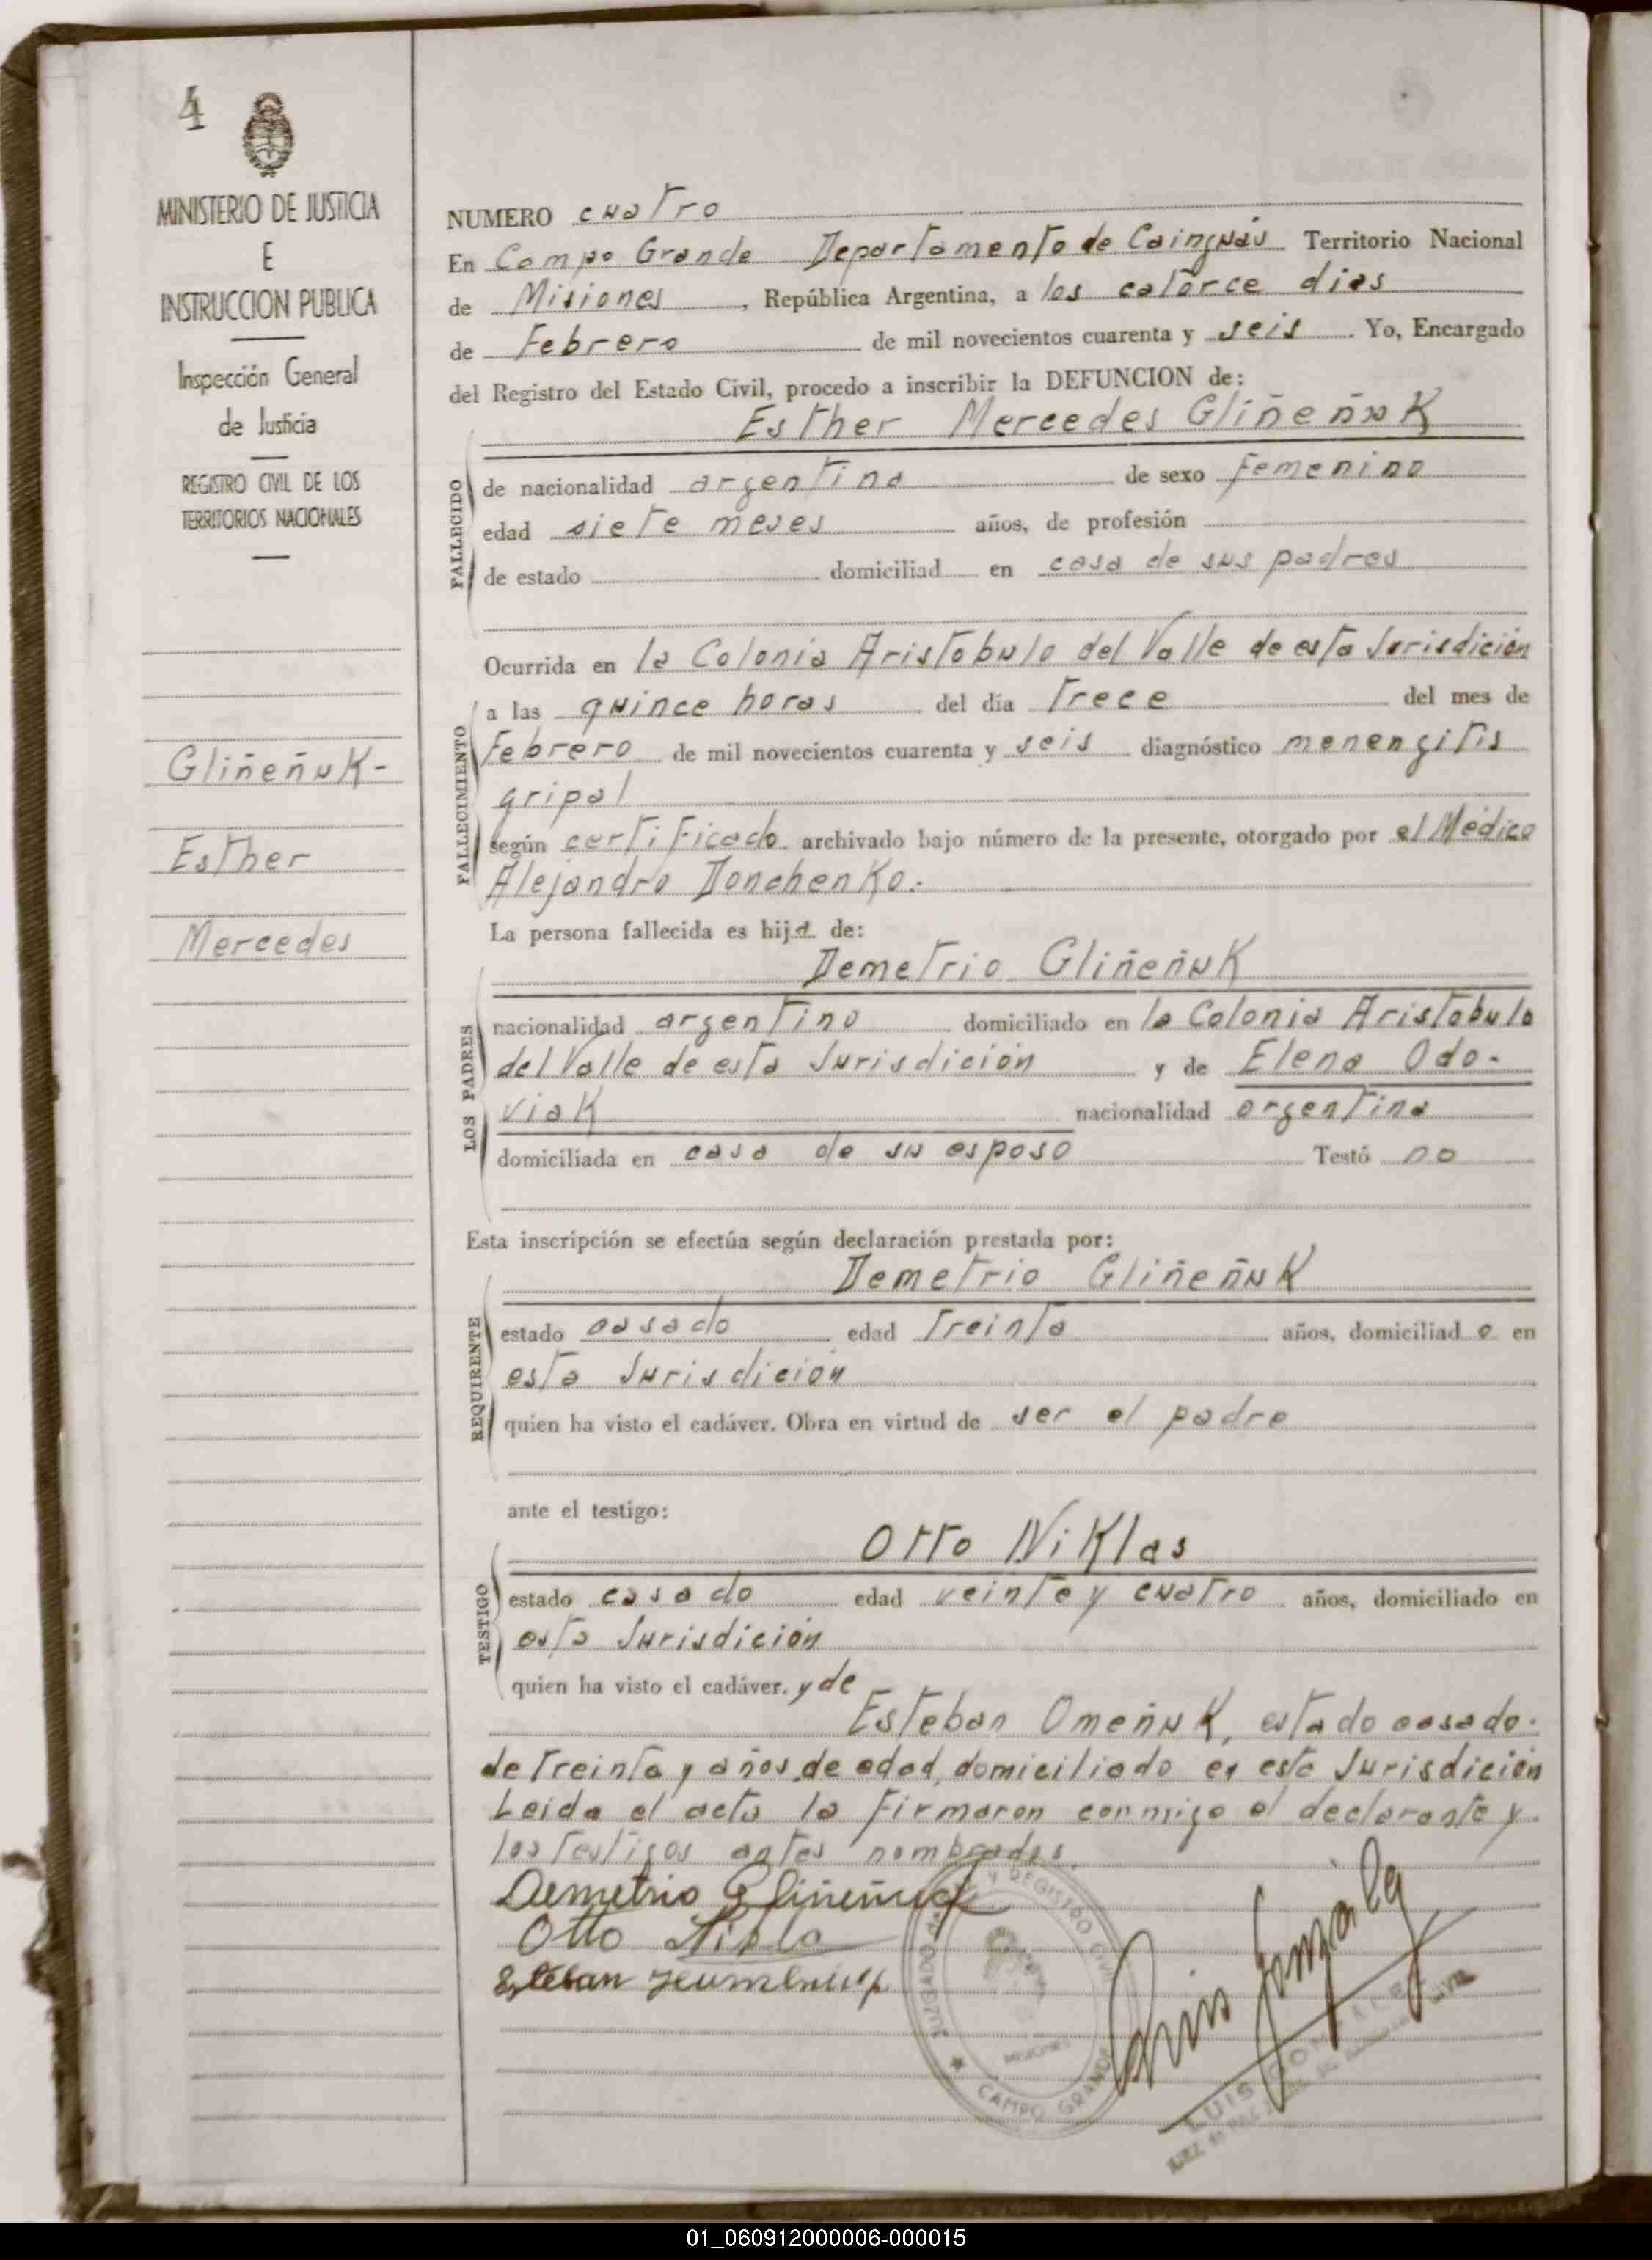 4
MINISTERIO DE JUSTICIA
E
INSTRUCCION PUBLICA
Inspección General
de Justicia
REGISTRO CIVIL DE LOS
TERRITORIOS NACIONALES
Gliñeñuk-
Esther
Mercedes
NUMERO cuatro
En Campo Grande Departamento de Cainguás Territorio Nacional
de Misiones, República Argentina, a los catorce dias
de Febrero de mil novecientos cuarenta y seis. Yo, Encargado
del Registro del Estado Civil, procedo a inscribir la DEFUNCION de:
Esther Mercedes Gliñeñuk
FALLECIDO
de nacionalidad argentina de sexo femenino
edad siete meses años, de profesión
de estado domiciliad en casa de sus padres
Ocurrida en la Colonia Aristobulo del Valle de esta Jurisdición
FALLECIMIENTO
a las quince horas del día trece del mes de
Febrero de mil novecientos cuarenta y seis diagnóstico menengitis
gripal
según certificado archivado bajo número de la presente, otorgado por el Médico
Alejandro Donchenko.
La persona fallecida es hija de:
Demetrio Gliñeñuk
LOS PADRES
nacionalidad argentino domiciliado en la Colonia Aristobulo
del Valle de esta Jurisdición y de Elena Odo-
viak nacionalidad argentina
domiciliada en casa de su esposo Testó no
Esta inscripción se efectúa según declaración prestada por:
Demetrio Gliñeñuk
REQUIRENTE
estado casado edad treinta años, domiciliado en
esta Jurisdición
quien ha visto el cadáver. Obra en virtud de ser el padre
ante el testigo:
Otto Niklas
TESTIGO
estado casado edad veinte y cuatro años, domiciliado en
esta Jurisdición
quien ha visto el cadáver. y de
Esteban Omeñuk, estado casado.
de treinta y años de edad, domiciliado en esta Jurisdición
Leida el acta la firmaron conmigo el declarante y
los testigos antes nombrados.
Demetrio Gliñeñuk
Otto
Esteban
JUZGADO DE Y REGISTRO CIVIL
MISIONES
CAMPO GRANDE
Luis González
LUIS GONZALEZ
JUEZ DE PAZ
01_060912000006-000015